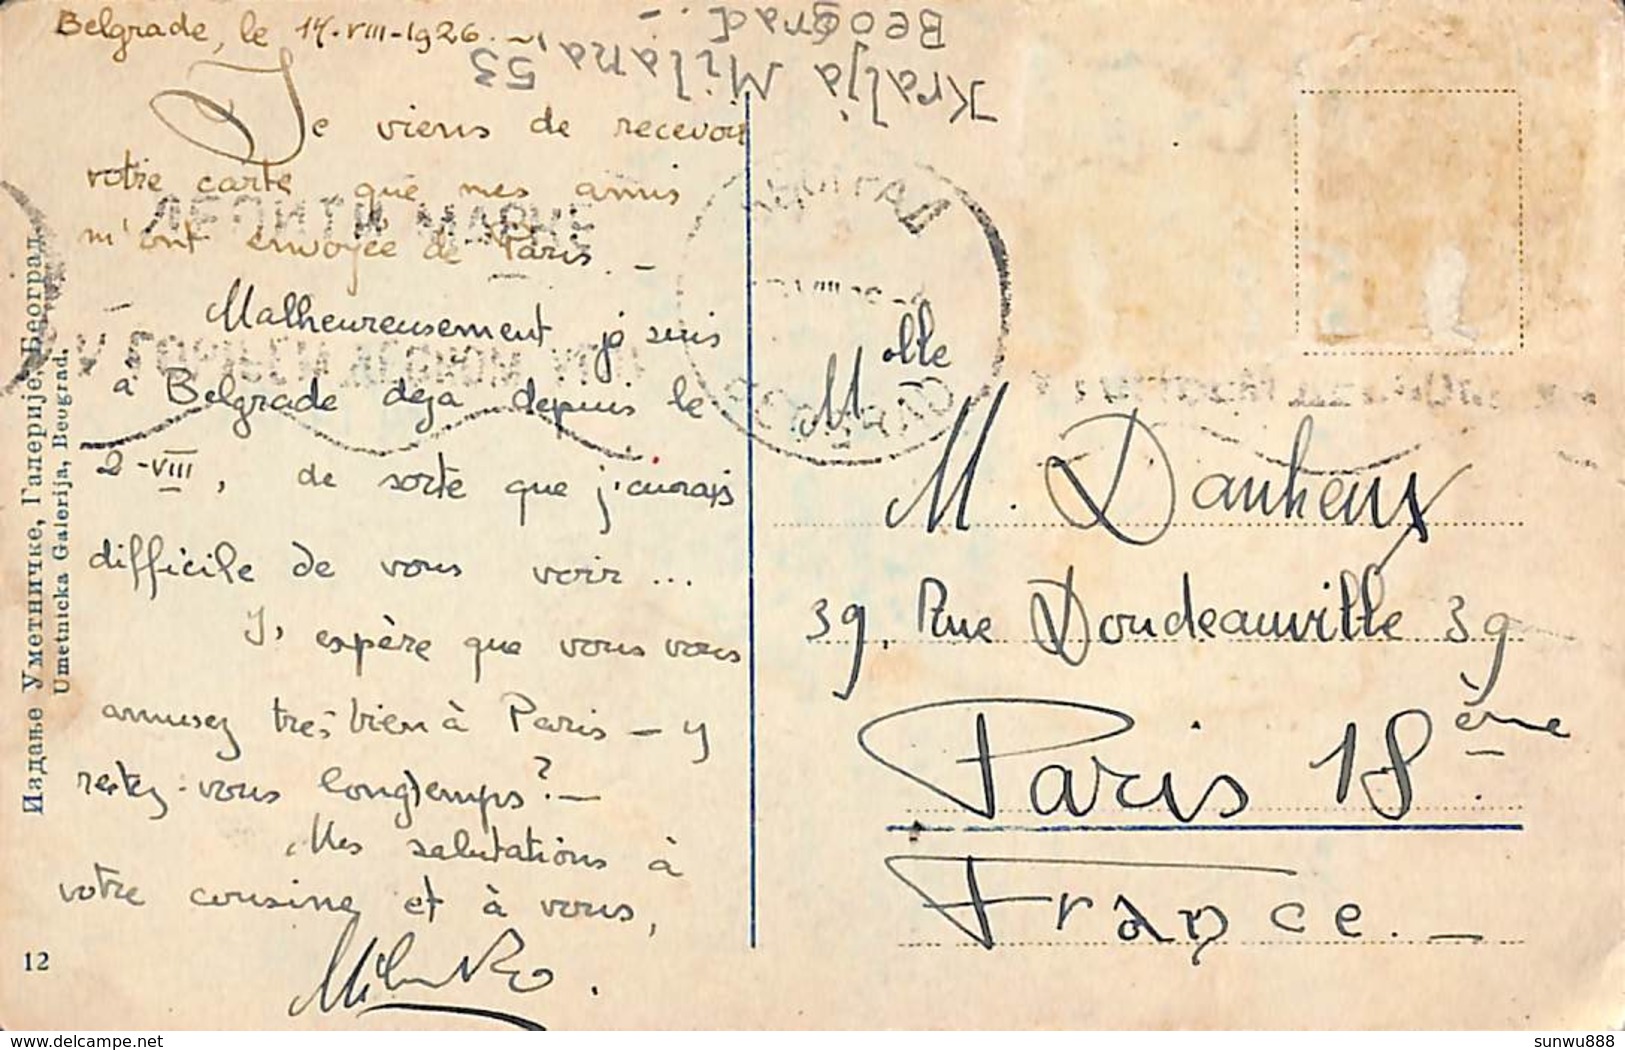 Belgrade, le 14-VIII-1926.
Kralja Milana, 53
Beograd.-
Je viens de recevoir
votre carte que mes amis
m'ont envoyée de Paris. -
Malheureusement je suis
à Belgrade déjà depuis le
2-VIII, de sorte que j'aurais
difficile de vous voir...
J'espère que vous vous
amusez très bien à Paris - y
restez-vous longtemps? -
Mes salutations à
votre cousine et à vous,
Издање Уметничке, Галерије, Београд.
Umetnicka Galerija, Beograd.
12
Mlle
M. Dauheux
39, Rue Doudeauville 39
Paris 18ème
France. -
delcampe.net
sunwu888